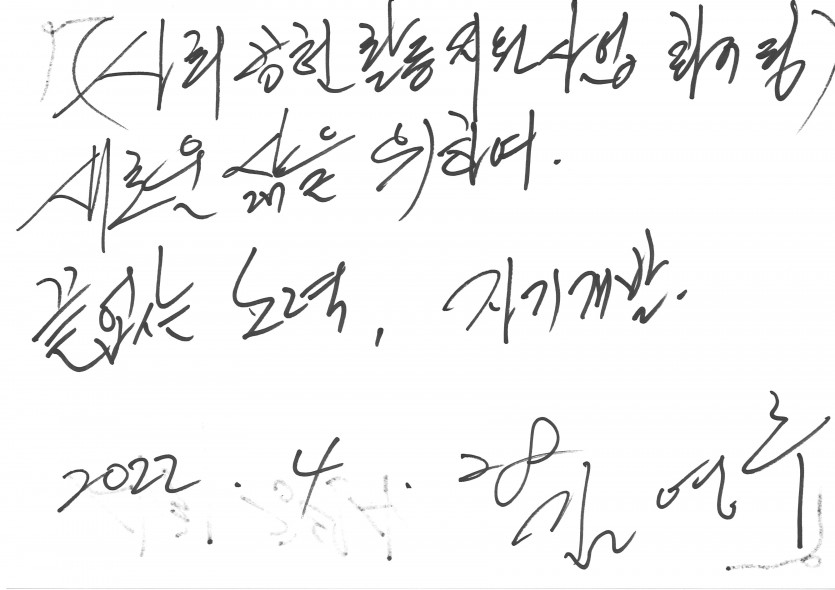 (사회공헌활동지원사업 화이팅)
새로운 삶을 위하여.
끝없는 노력, 자기개발.
2022. 4. 28 김영주